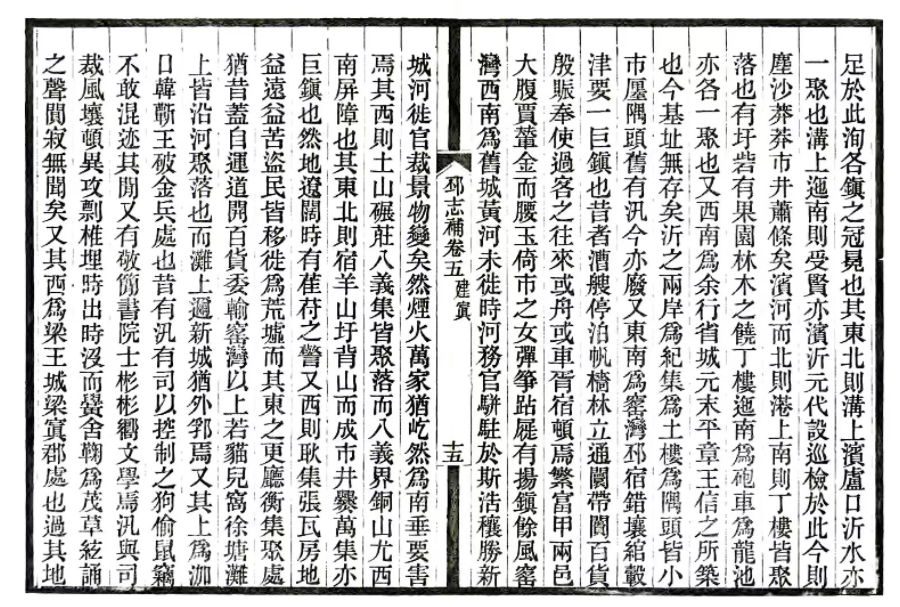 足於此洵各鎮之冠冕也其東北則溝上濱盧口沂水亦
一聚也溝上迤南則受賢亦濱沂元代設巡檢於此今則
塵沙莽莽市井蕭條矣濱河而北則港上南則丁樓皆聚
落也有圩砦有果園林木之饒丁樓迤南為砲車為龍池
亦各一聚也又西南為余行省城元末平章王信之所築
也今基址無存矣沂之兩岸為紀集為土樓為隅頭皆小
市廛隅頭舊有汛今亦廢又東南為窰灣邳宿錯壤綰轂
津要一巨鎮也昔者漕艘停泊帆檣林立通闤帶闠百貨
殷賑奉使過客之往來或舟或車胥宿頓焉繁富甲兩邑
大腹賈輦金而腰玉倚市之女彈箏跕屣有揚鎮餘風窰
灣西南為舊城黃河未徙時河務官駢駐於斯浩穰勝新
邳志補卷五 建寘
十五
城河徙官裁景物變矣然煙火萬家猶屹然為南垂要害
焉其西則土山碾莊八義集皆聚落而八義界銅山尤西
南屏障也其東北則宿羊山圩背山而成市井爨萬集亦
巨鎮也然地遼闊時有萑苻之警又西則耿集張瓦房地
益遠益苦盜民皆移徙為荒墟而其東之更廳衡集聚處
猶昔蓋自運道開百貨委輸窰灣以上若貓兒窩徐塘灘
上皆沿河聚落也而灘上邇新城猶外郛焉又其上為泇
口韓蘄王破金兵處也昔有汛有司以控制之狗偷鼠竊
不敢混迹其閒又有敬簡書院士彬彬嚮文學焉汛與司
裁風壤頓異攻剽椎埋時出時沒而黌舍鞠為茂草絃誦
之聲閴寂無聞矣又其西為梁王城梁寘郡處也過其地